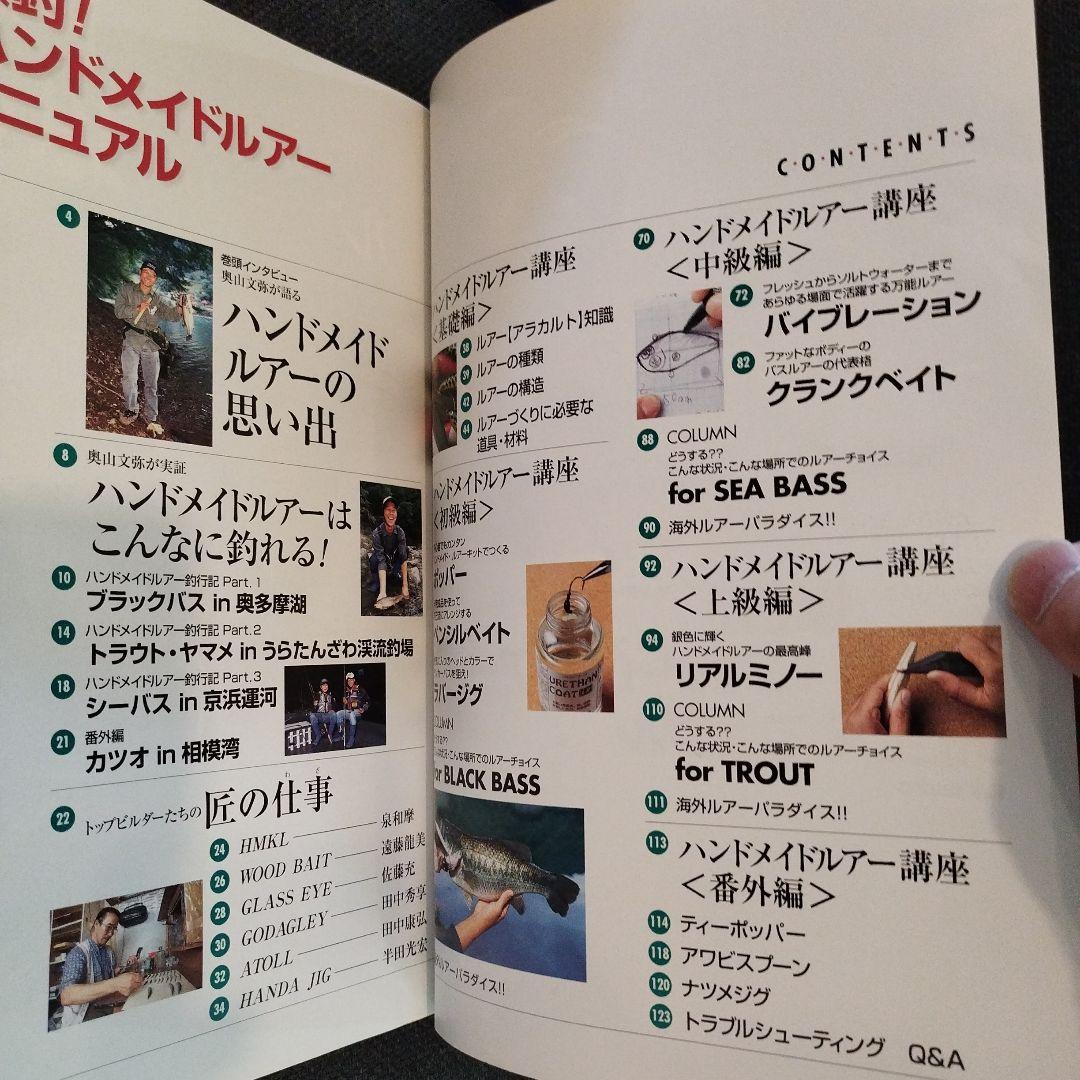 釣!
ハンドメイドルアー
ニュアル
4
巻頭インタビュー
奥山文弥が語る
ハンドメイド
ルアーの
思い出
8
奥山文弥が実証
ハンドメイドルアーは
こんなに釣れる!
10
ハンドメイドルアー釣行記 Part. 1
ブラックバス in 奥多摩湖
14
ハンドメイドルアー釣行記 Part.2
トラウト・ヤマメ in うらたんざわ渓流釣場
18
ハンドメイドルアー釣行記 Part.3
シーバス in 京浜運河
21
番外編
カツオ in 相模湾
22
トップビルダーたちの 匠の仕事
わざ
24 HMKL 泉和摩
26 WOOD BAIT 遠藤龍美
28 GLASS EYE 佐藤充
30 GODAGLEY 田中秀享
32 ATOLL 田中康弘
34 HANDA JIG 半田光宏
CONTENTS
ハンドメイドルアー講座
<基礎編>
38 ルアー[アラカルト]知識
39 ルアーの種類
42 ルアーの構造
44 ルアーづくりに必要な
道具・材料
ハンドメイドルアー講座
<初級編>
でもカンタン
メイド・ルアーキットでつくる
ポッパー
を使って
にアレンジする
ペンシルベイト
ヘッドとカラーで
バスを狙え!
ラバージグ
COLUMN
どうする??
こんな状況・こんな場所でのルアーチョイス
for BLACK BASS
URETHANE
COAT
ルアーパラダイス!!
70
ハンドメイドルアー講座
<中級編>
72
フレッシュからソルトウォーターまで
あらゆる場面で活躍する万能ルアー
バイブレーション
82
ファットなボディーの
バスルアーの代表格
クランクベイト
88
COLUMN
どうする??
こんな状況・こんな場所でのルアーチョイス
for SEA BASS
90
海外ルアーパラダイス!!
92
ハンドメイドルアー講座
<上級編>
94
銀色に輝く
ハンドメイドルアーの最高峰
リアルミノー
110
COLUMN
どうする??
こんな状況・こんな場所でのルアーチョイス
for TROUT
111
海外ルアーパラダイス!!
113
ハンドメイドルアー講座
<番外編>
114 ティーポッパー
118 アワビスプーン
120 ナツメジグ
123 トラブルシューティング Q&A